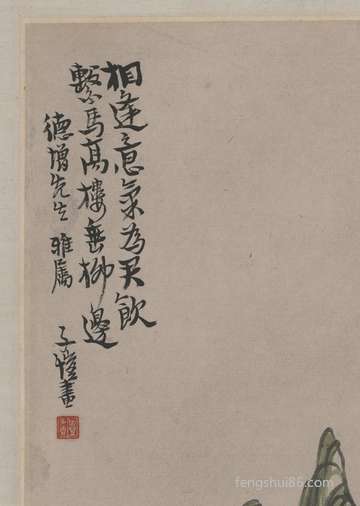 相逢意氣為君飲
繫馬高樓垂柳邊
德增先生 雅屬
子愷畫
fengshui86.com